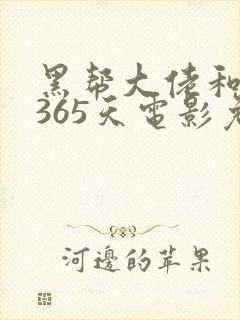 黑帮大佬和
365天电影
河邊的苹果